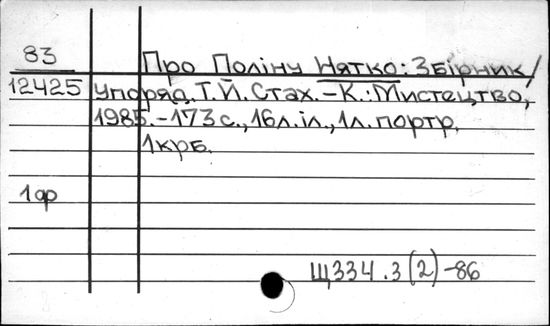 83 Про Поліну Нятко: Збірник/
12425 упоряд. Т.Й. Стах. -К.: Мистецтво,
1985. -173 с., 16л.іл., 1л. портр.
1крб.
1ф
Щ334.3(2)-86